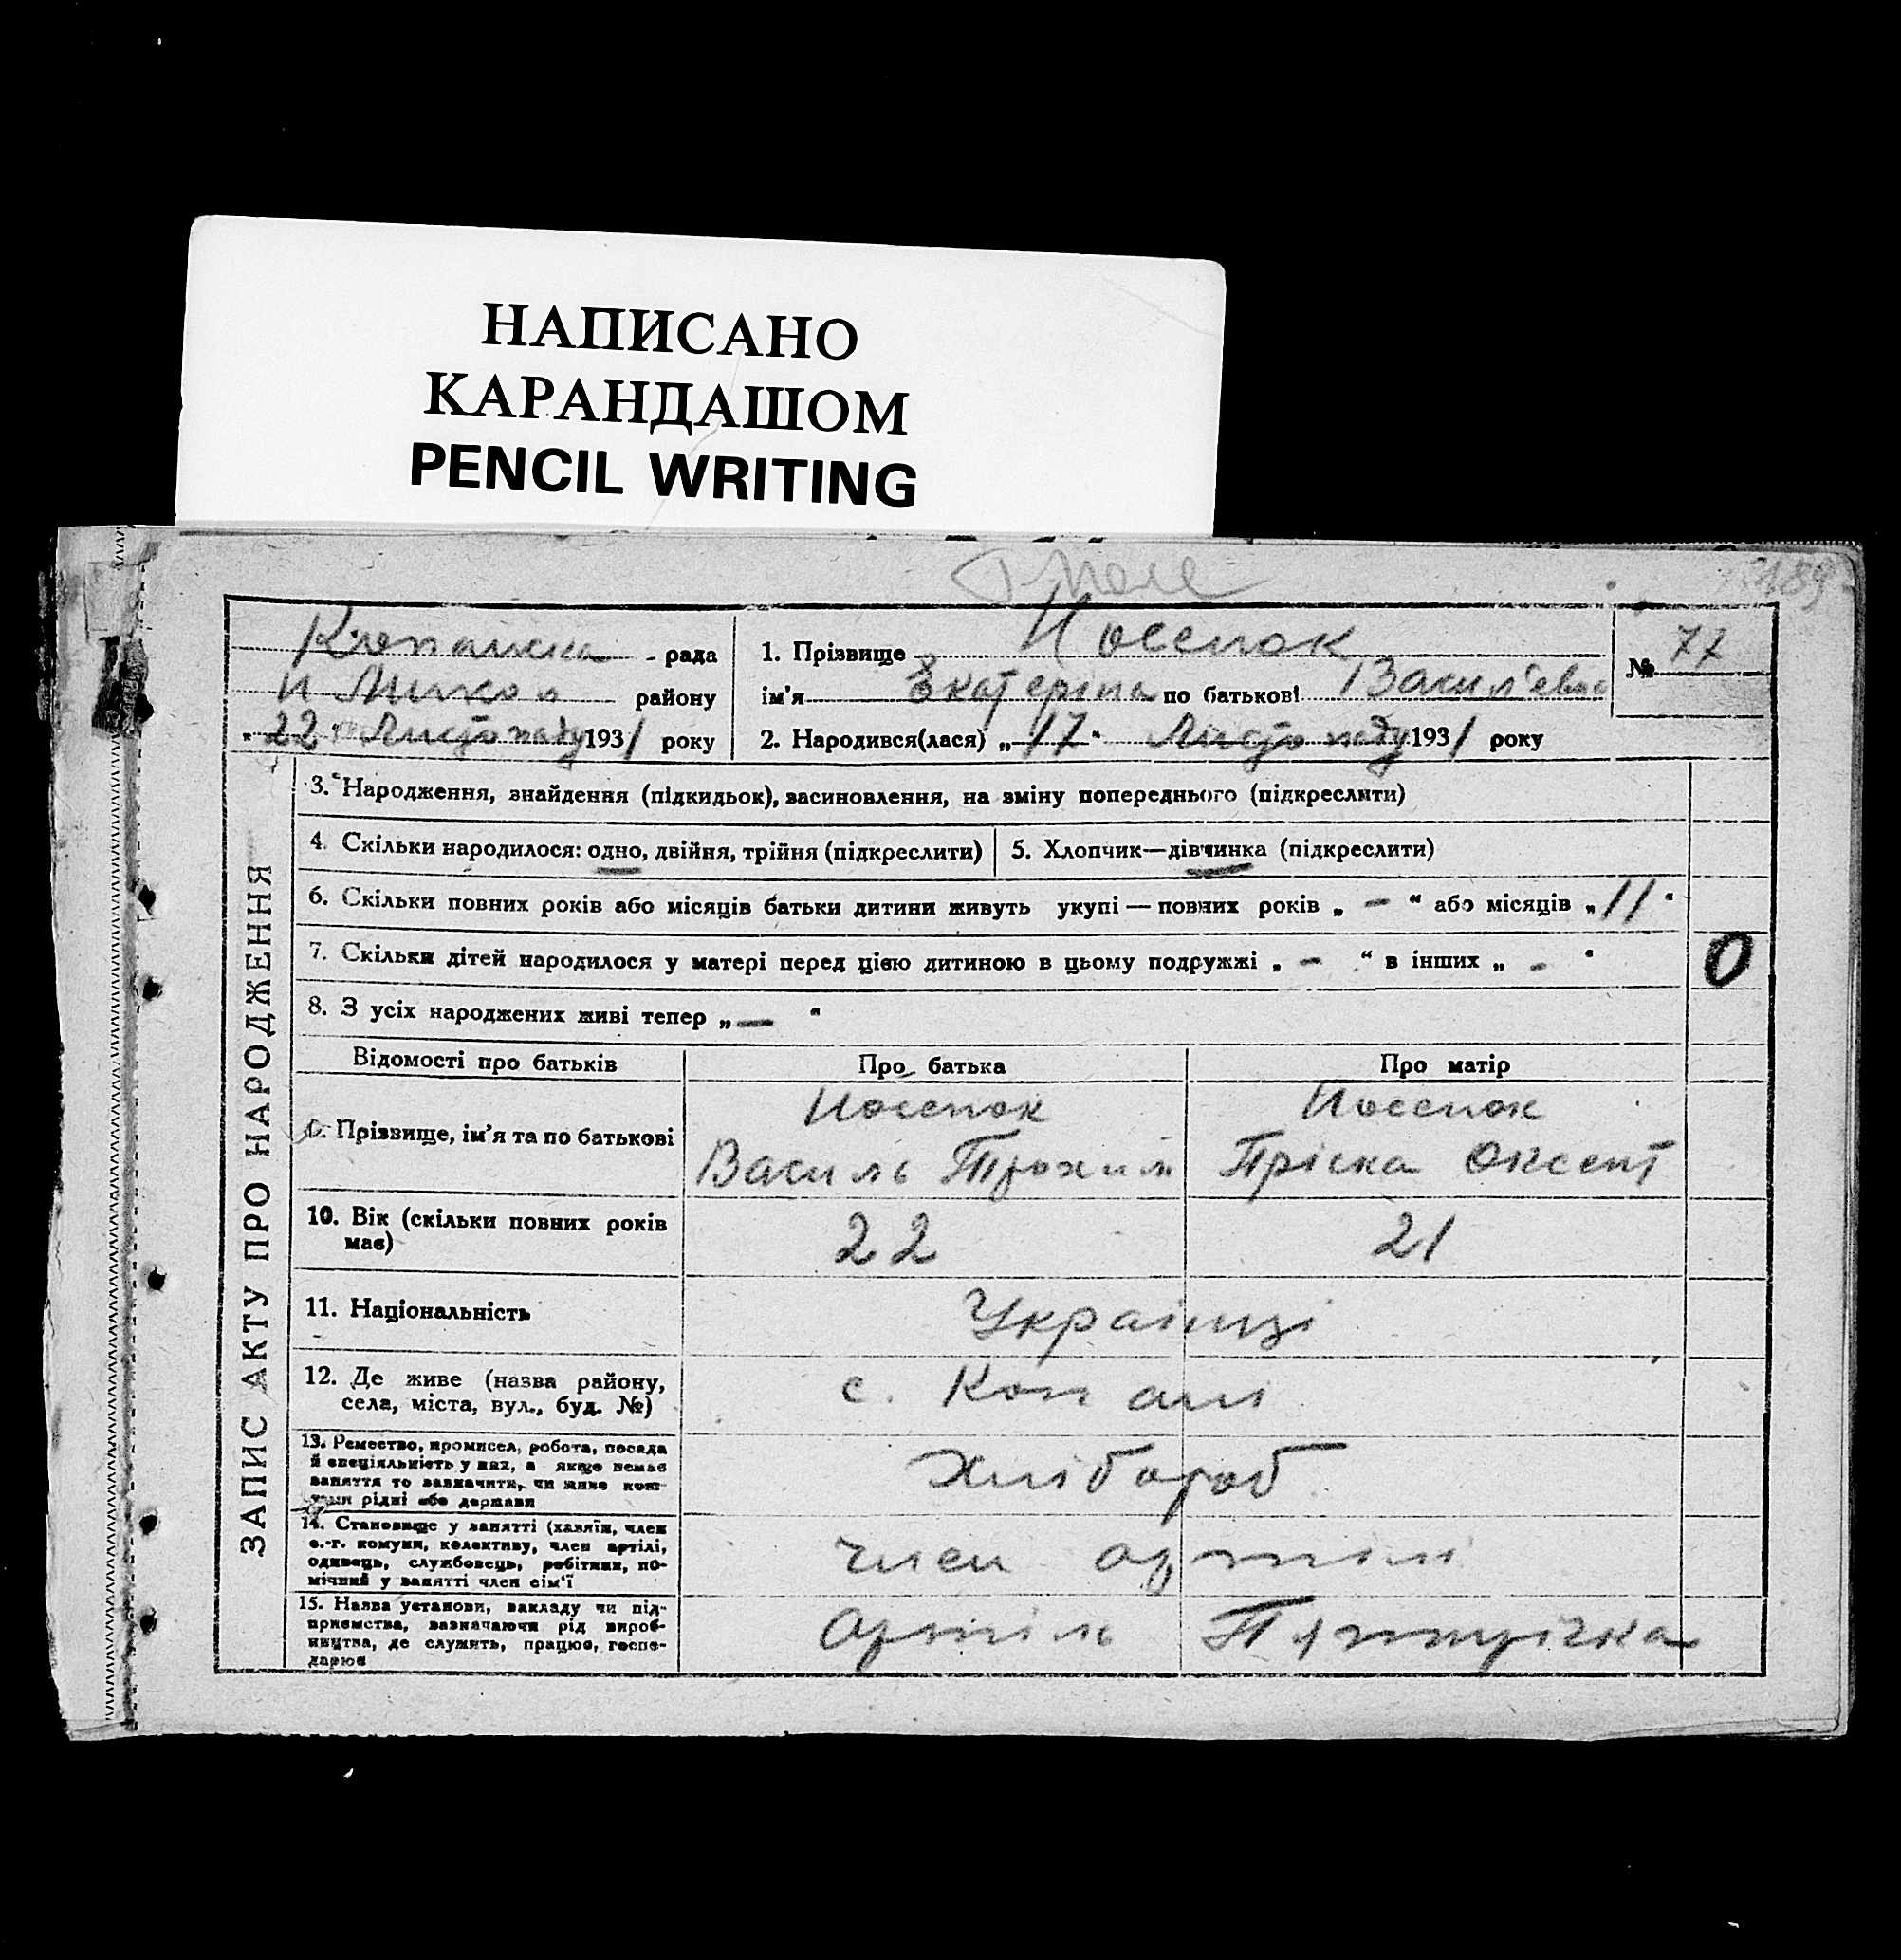 НАПИСАНО
КАРАНДАШОМ
PENCIL WRITING
189
Копанська рада
н Микол району
"22" Листопаду 1931 року
1. Прізвище Носепок
ім'я Екатеріна по батькові Василевна
2. Народився(лася) „17" Листопаду 1931 року
№ 77
ЗАПИС АКТУ ПРО НАРОДЖЕННЯ
3. Народження, знайдення (підкидьок), засиновлення, на зміну попереднього (підкреслити)
4. Скільки народилося: одно, двійня, трійня (підкреслити)
5. Хлопчик—дівчинка (підкреслити)
6. Скільки повних років або місяців батьки дитини живуть укупі — повних років „ — " або місяців „11"
7. Скільки дітей народилося у матері перед цією дитиною в цьому подружжі „ — " в інших „ - "
0
8. З усіх народжених живі тепер „ — "
Відомості про батьків
Про батька
Про матір
Прізвище, ім'я та по батькові
Носепок
Василь Трохим
Носепок
Пріска Оксент
10. Вік (скільки повних років
має)
22
21
11. Національність
Українці
12. Де живе (назва району,
села, міста, вул., буд. №)
с. Копані
13. Ремество, промисел, робота, посада
й спеціяльність у них, а якщо немає
заняття то зазначити, чи живе кош-
тами рідні або держави
Хлібороб
14. Становище у занятті (хазяїн, член
с.-г. комуни, колективу, член артілі,
одинець, службовець, робітник, по-
мічний у занятті член сім'ї
член артілі
15. Назва установи, закладу чи під-
приємства, зазначаючи рід вироб-
ництва, де служить, працює, госпо-
дарює
Артіль